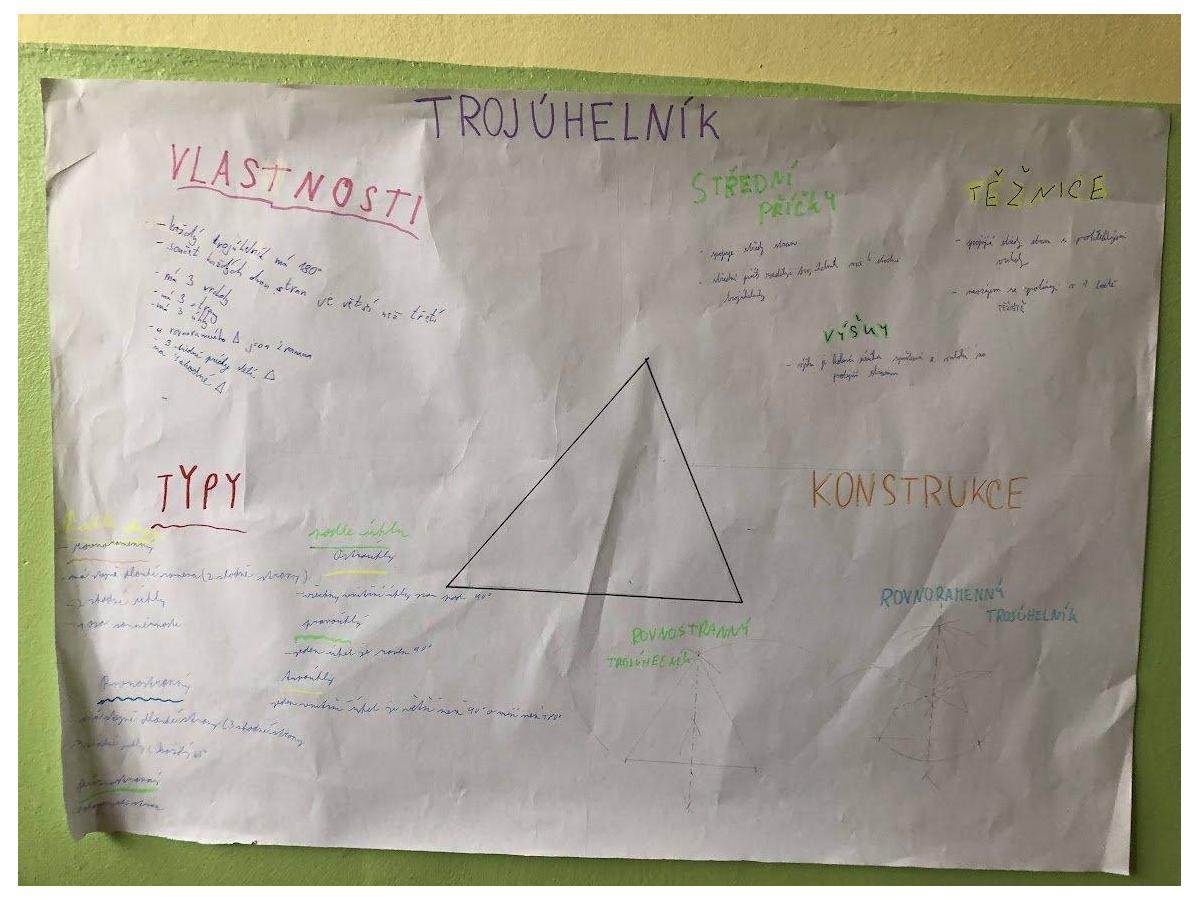 TROJÚHELNÍK
VLASTNOSTI
- každý trojúhelník má 180°
- součet každých dvou stran je větší než třetí
- má 3 vrcholy
- má 3 strany
- má 3 úhly
- u rovnoramenného Δ jsou 2 ramena
3 střední příčky dělí Δ
na 4 shodné Δ
-
STŘEDNÍ
PŘÍČKY
- spojuje středy stran
- střední příčka rozděluje trojúhelník na 4 shodné
trojúhelníky
TĚŽNICE
- spojují středy stran s protilehlými
vrcholy
- navzájem se protínají v 1 bodě
TĚŽIŠTĚ
VÝŠKY
- výška je kolmá úsečka spuštěná z vrcholu na
protější stranu
TYPY
- rovnoramenný
- má stejně dlouhá ramena (2 shodné strany)
- 2 shodné úhly
- osa souměrnosti
Rovnostranný
má stejně dlouhé strany (3 shodné strany
podle úhlu
Ostroúhlý
- všechny vnitřní úhly jsou pod 90°
pravoúhlý
- jeden úhel je roven 90°
tupoúhlý
jeden vnitřní úhel je větší než 90° a míň než 180°
KONSTRUKCE
ROVNOSTRANNÝ
TROJÚHELNÍK
ROVNORAMENNÝ
TROJÚHELNÍK